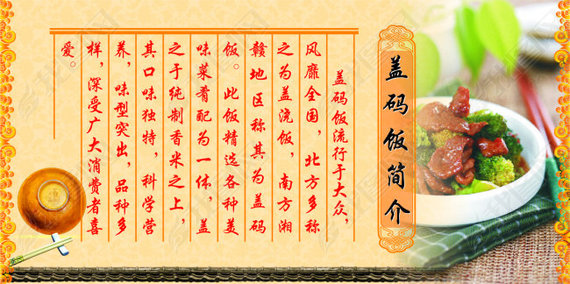 盖码饭简介
盖码饭流行于大众，
风靡全国，北方多称
之为盖浇饭，南方湘
赣地区称其为盖码
饭。此饭精选各种美
味菜肴配为一体，盖
之于纯制香米之上，
其口味独特，科学营
养，味型突出，品种多
样，深受广大消费者喜
爱。